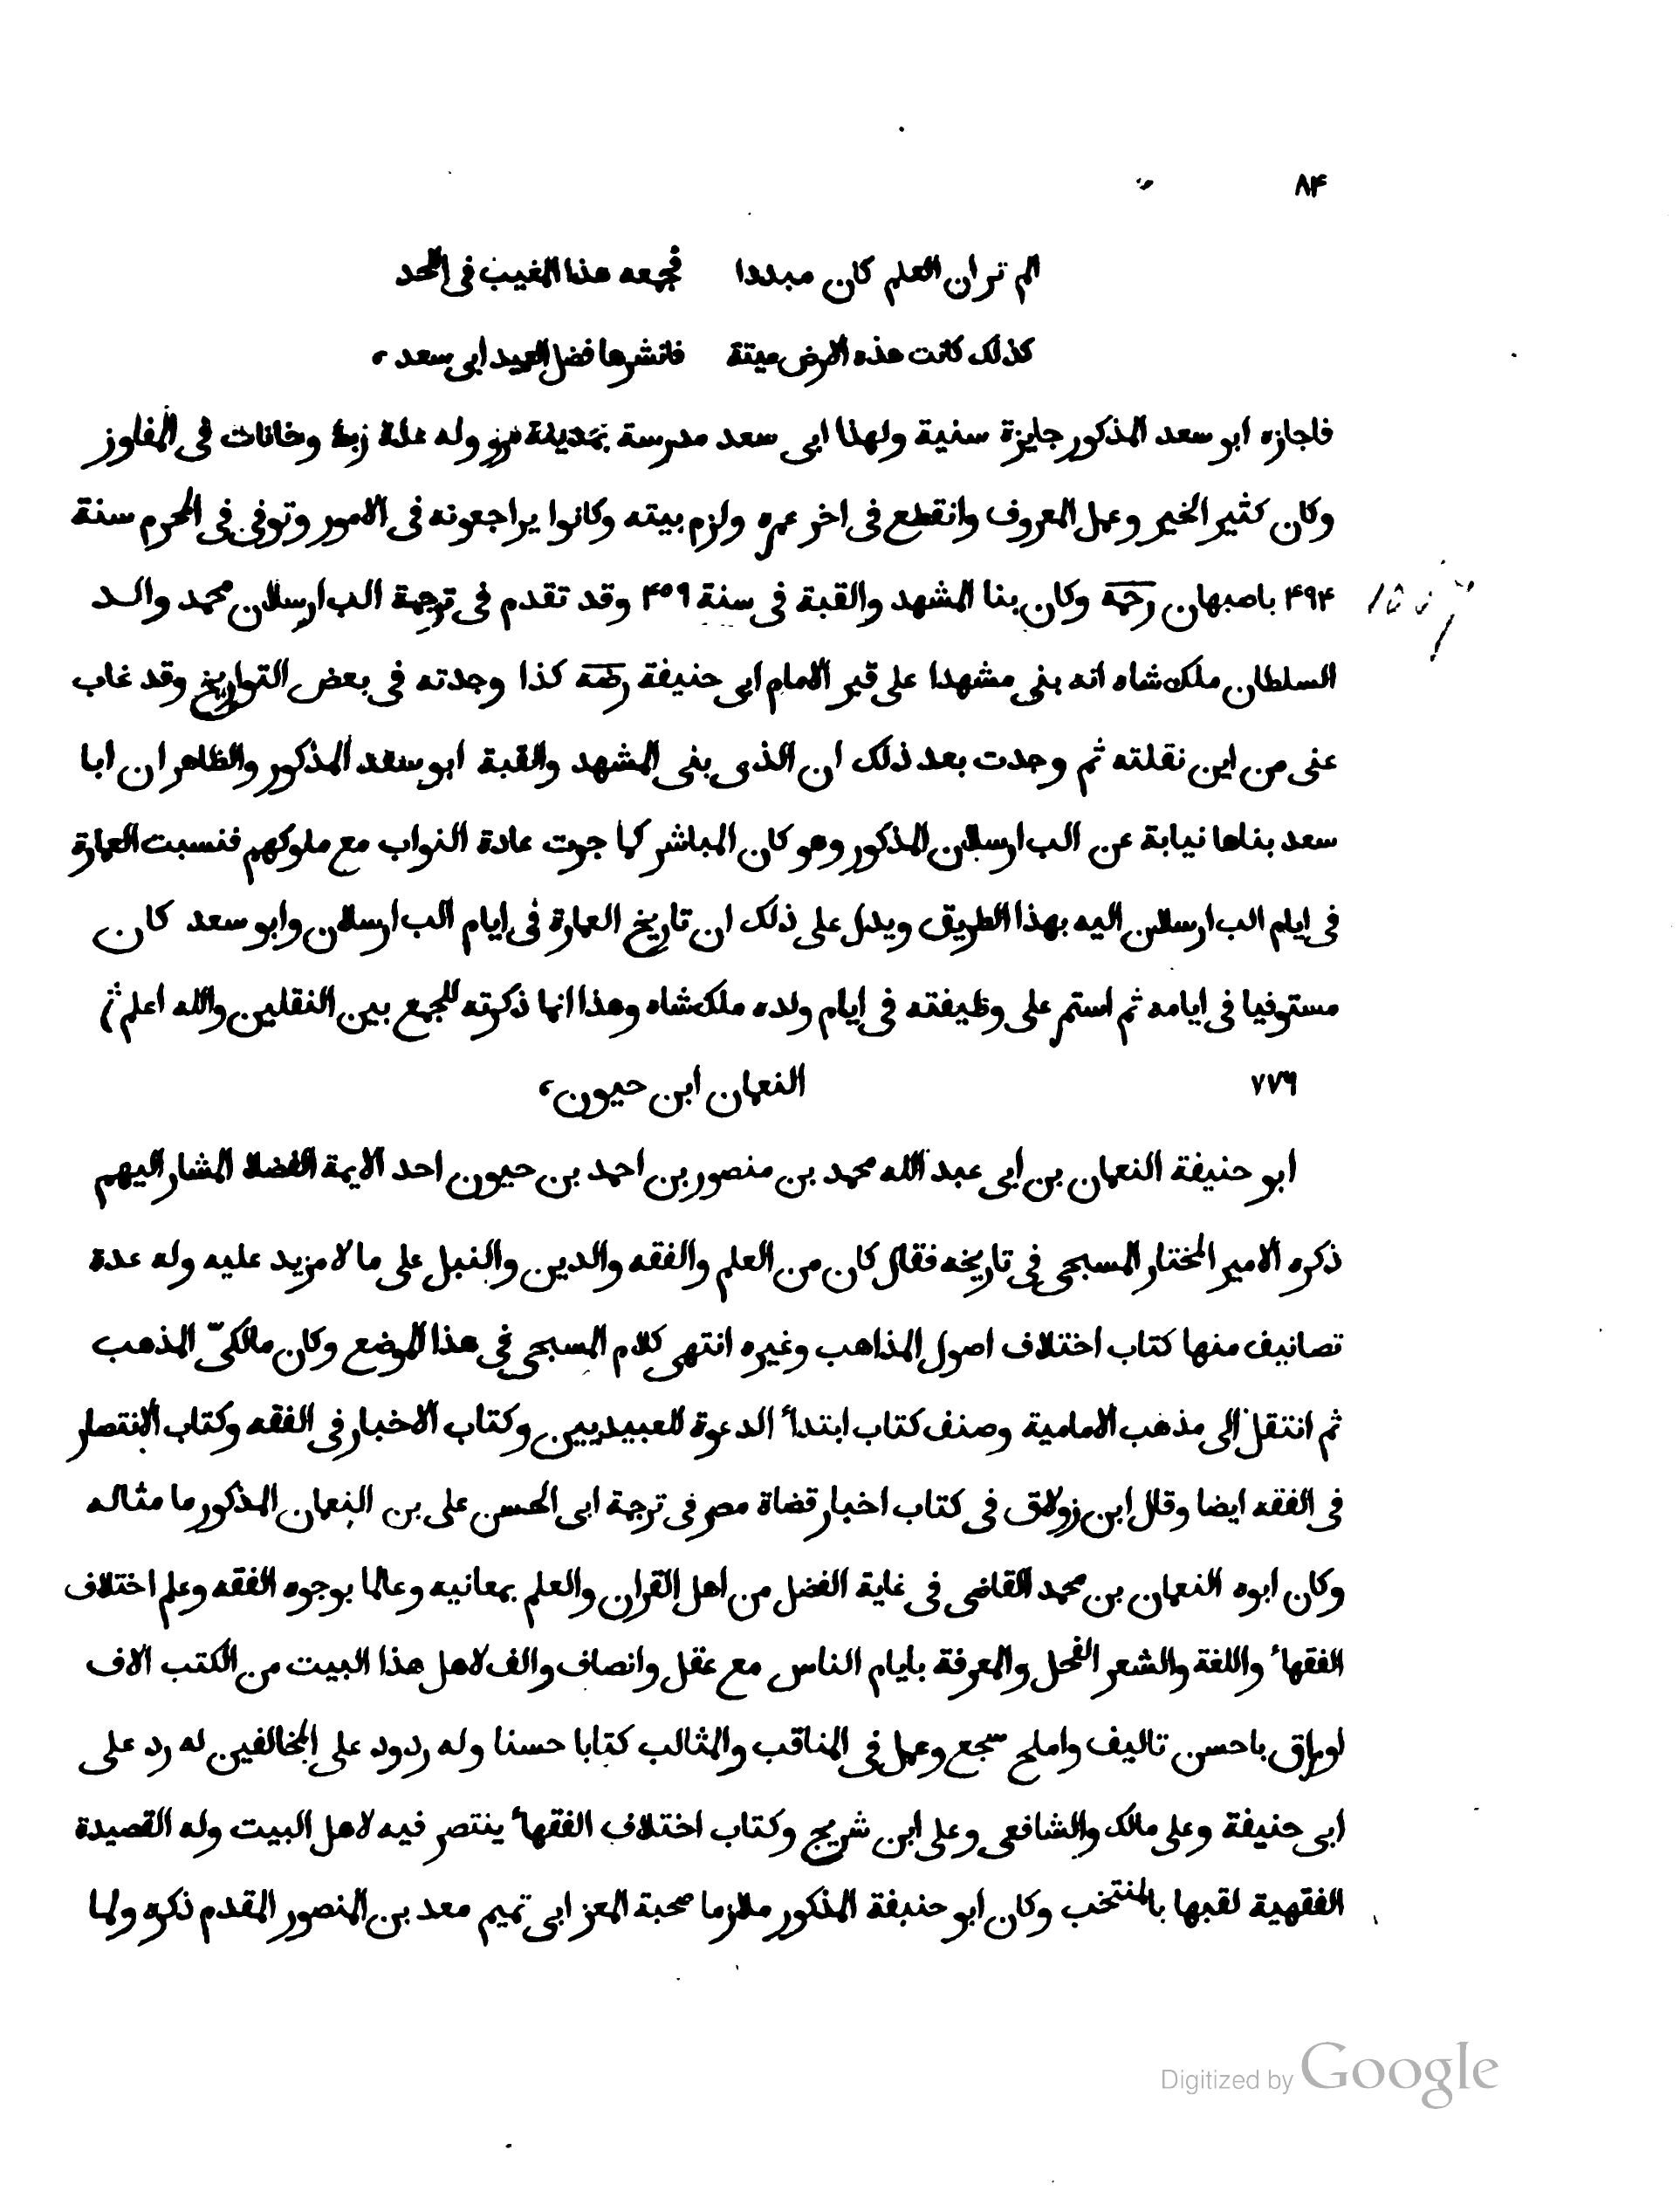 ٨۴
الم تر ان العلم كان مبددا فجمعه هذا المغيب فى اللحد
كذلك كانت هذه الارض ميتة فانشرها فضل العميد ابى سعد،
فاجازه ابو سعد المذكور جايزة سنية ولهذا ابى سعد مدرسة بمدينة مرو وله عدة ربط وخانات فى المفاوز
وكان كثير الخير وعمل المعروف وانقطع فى اخر عمره ولزم بيته وكانوا يراجعونه فى الامور وتوفى فى المحرم سنة
۴٩۴ باصبهان رحمه وكان بنا المشهد والقبة فى سنة ۴٥٩ وقد تقدم فى ترجمة الب ارسلان محمد والد
السلطان ملك شاه انه بنى مشهدا على قبر الامام ابى حنيفة رضه كذا وجدته فى بعض التواريخ وقد غاب
عنى من اين نقلته ثم وجدت بعد ذلك ان الذى بنى المشهد والقبة ابو سعد المذكور والظاهر ان ابا
سعد بناها نيابة عن الب ارسلان المذكور وهو كان المباشر كما جرت عادة النواب مع ملوكهم فنسبت العمارة
فى ايام الب ارسلان اليه بهذا الطريق ويدل على ذلك ان تاريخ العمارة فى ايام الب ارسلان وابو سعد كان
مستوفيا فى ايامه ثم استمر على وظيفته فى ايام ولده ملك شاه وهذا انما ذكرته للجمع بين النقلين والله اعلم
٧٧٦ النعمان ابن حيون،
ابو حنيفة النعمان بن ابى عبد الله محمد بن منصور بن احمد بن حيون احد الايمة الفضلا المشار اليهم
ذكره الامير المختار المسبحى فى تاريخه فقال كان من العلم والفقه والدين والنبل على ما لا مزيد عليه وله عدة
تصانيف منها كتاب اختلاف اصول المذاهب وغيره انتهى كلام المسبحى فى هذا الموضع وكان مالكىّ المذهب
ثم انتقل الى مذهب الامامية وصنف كتاب ابتدأ الدعوة للعبيديين وكتاب الاخبار فى الفقه وكتاب الانتصار
فى الفقه ايضا وقال ابن زولاق فى كتاب اخبار قضاة مصر فى ترجمة ابى الحسن على بن النعمان المذكور ما مثاله
وكان ابوه النعمان بن محمد القاضى فى غاية الفضل من اهل القران والعلم بمعانيه وعالما بوجوه الفقه وعلم اختلاف
الفقهأ واللغة والشعر الفحل والمعرفة بايام الناس مع عقل وانصاف والف لاهل هذا البيت من الكتب الاف
اوراق باحسن تاليف واملح سجع وعمل فى المناقب والمثالب كتابا حسنا وله ردود على المخالفين له رد على
ابى حنيفة وعلى مالك والشافعى وعلى ابن شريح وكتاب اختلاف الفقهأ ينتصر فيه لاهل البيت وله القصيدة
الفقهية لقبها بالمنتخب وكان ابو حنيفة المذكور ملازما صحبة المعز ابى تميم معد بن المنصور المقدم ذكره ولما
Digitized by Google